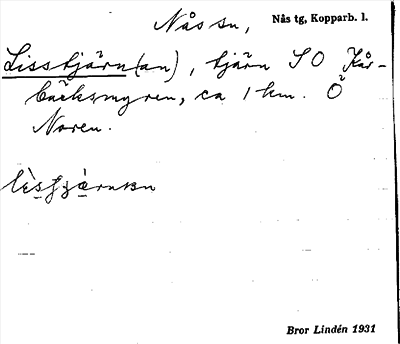 Nås sn, Nås tg, Kopparb. l.
Lisstjärn(an), tjärn SO Kår-
bäcksmyren, ca 1 km. Ö
Noren.
Bror Lindén 1931